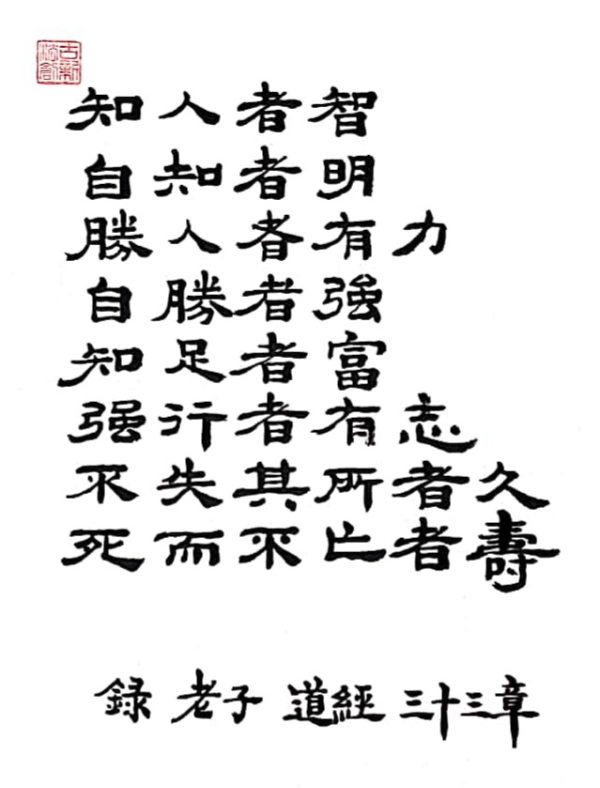 知人者智
自知者明
勝人者有力
自勝者強
知足者富
强行者有志
不失其所者久
死而不亡者壽
録 老子 道經 三十三章